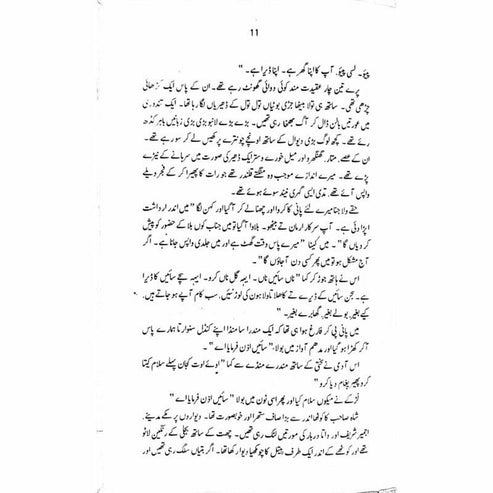 11
پیؤ۔ لسی پیؤ۔ آپ کا اپنا گھر ہے۔ اپنا ڈیرا ہے۔"
پرے تین چار عقیدت مند کوئی دوائی گھونٹ رہے تھے۔ ان کے پاس ایک کڑھائی
چڑھی تھی۔ ساتھ ہی تولا بیٹھا جڑی بوٹیاں تول تول کے ڈھیریاں لگا رہا تھا۔ ایک تندوری
میں عورتیں بالن ڈال کر آگ بھڑکا رہی تھیں۔ بڑے بڑے لانبو بڑی بڑی زبانیں باہر کڈھ
رہے تھے۔ کچھ لوگ بڑی دیوال کے ساتھ اونچے چونترے پر کھیس لے کر سو رہے تھے۔
ان کے عصے، متار، گھنگھرو اور میل خورے وستر ایک ڈھیر کی صورت میں سرہانے کے نیڑے
پڑے تھے۔ میرے اندازے موجب وہ منگتے قلندر تھے جو رات کا پھیرا کر کے فجر ویلے
واپس آئے تھے۔ تدی ایسی گہری نیند سوئے ہوئے تھے۔
حقے والا جنا میرے لئے پانی کا کروا اور چھنا لے کر آ گیا اور کہن لگا "میں اندر ارداشت
اپڑا دئی ہے۔ آپ سرکار ارمان تے بیٹھو۔ بلاوا آ گیا تو میں جناب کوں بلا کے حضور کو پیش
کر دیاں گا"۔ میں کہنا "میرے پاس وقت گھٹ ہے اور میں جلدی واپس جانا ہے۔ اگر
آج مشکل ہو تو میں پھر کسی دن آ جاؤں گا"۔
اس نے ہاتھ جوڑ کر کہا "ناں سائیں ناں۔ ایسہ گل ناں کرو۔ ایہہ سچے سائیں کا ڈیرا
ہے۔ جن سائیں کے ڈیرے تے کاھلا تاولا ہون کی لوڑ نئیں۔ سب کام آپے ہو جاتے ہیں۔
کہے بغیر، بولے بغیر، گھابرے بغیر۔"
میں پانی پی کر فارغ ہوا ہی تھا کہ ایک مندرا سا منڈا اپنے کنڈل سنوارتا ہمارے پاس
آ کر کھڑا ہو گیا اور مدھم آواز میں بولا۔ "سائیں اذن فرمایا اے"
اس آدمی نے سختی کے ساتھ مندرے منڈے سے کہا "اوئے اوت کجان پہلے سلام کیتا
کرو پھیر پیغام دیا کرو"
لڑکے نے میکوں سلام کیا اور پھر اسی نون میں بولا "سائیں اذن فرمایا اے"
شاہ صاحب کا کوٹھا اندر سے بڑا صاف ستھرا اور خوبصورت تھا۔ دیواروں پر مکے مدینے،
اجمیر شریف اور داتا دربار کی مورتیں لٹک رہی تھیں۔ چھت کے ساتھ بجلی کے رنگین لاٹو
تھے اور کوٹھے کے اندر ایک طرف پیتل کا چوکھپا دیوا رکھا تھا۔ اگر بتیاں سلگ رہی تھیں اور